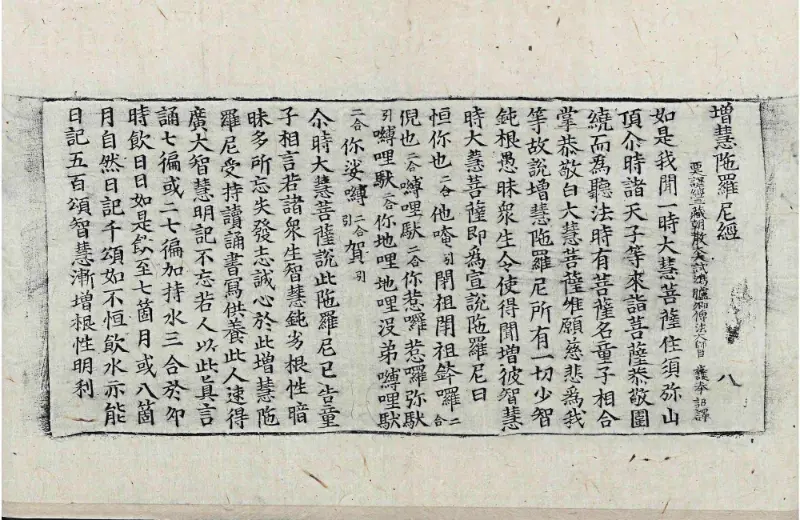 增慧陁羅尼經
西天譯經三藏朝散大夫試鴻臚卿傳法大師臣 施護奉 詔譯
八
如是我聞一時大慧菩薩住須弥山
頂尒時諸天子等來詣菩薩恭敬圍
繞而為聽法時有菩薩名童子相合
掌恭敬白大慧菩薩惟願慈悲為我
等故說增慧陁羅尼所有一切少智
鈍根愚昧衆生令使得聞增彼智慧
時大慧菩薩即為宣說陁羅尼曰
恒你也二合他唵引閉祖閉祖鉾囉二合
倪也二合嚩哩馱二合你惹囉惹囉弥馱
引嚩哩馱二合你地哩地哩没弟嚩哩馱
二合你娑嚩引二合賀引
尒時大慧菩薩說此陁羅尼已告童
子相言若諸衆生智慧鈍劣根性暗
昧多所忘失發志誠心於此增慧陁
羅尼受持讀誦書寫供養此人速得
廣大智慧明記不忘若人以此真言
誦七徧或二七徧加持水三合於夘
時飲日日如是飲至七箇月或八箇
月自然日記千頌如不恒飲水亦能
日記五百頌智慧漸增根性明利